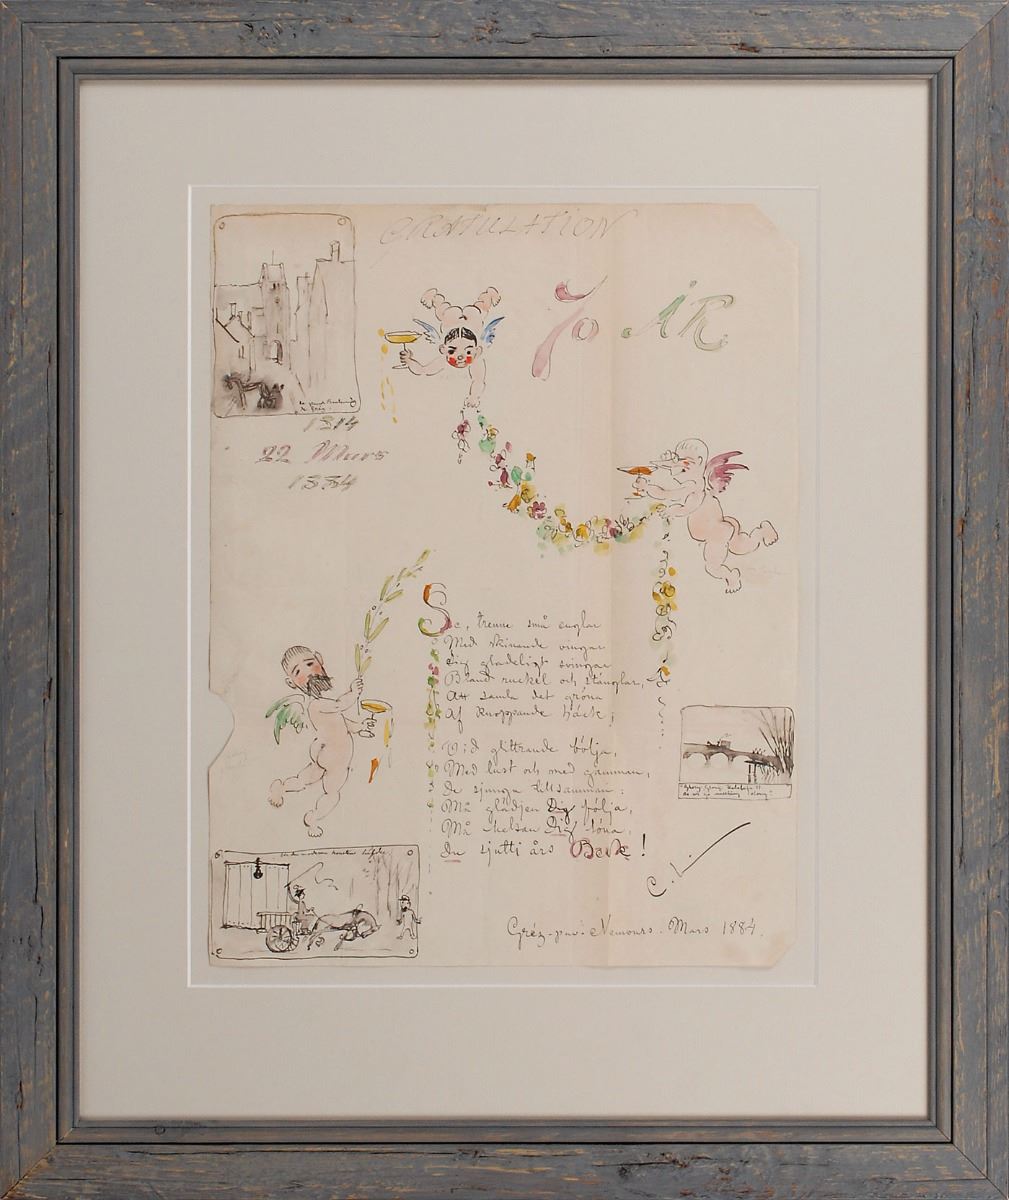 GRATULATION
70 ÅR
1814
22 Mars
1884
Se, trenne små englar
Med skinande vingar
Sig gladeligt svingar
Bland ruckel och stänglar,
Att samla det gröna
Af knoppande häck;
Vid glittrande bölja,
Med lust och med gamman,
De sjunga tillsamman:
Må glädjen Dig följa,
Må helsan Dig löna,
Du sjutti års Beck!
C. L.
Gréz-par-Nemours. Mars 1884.